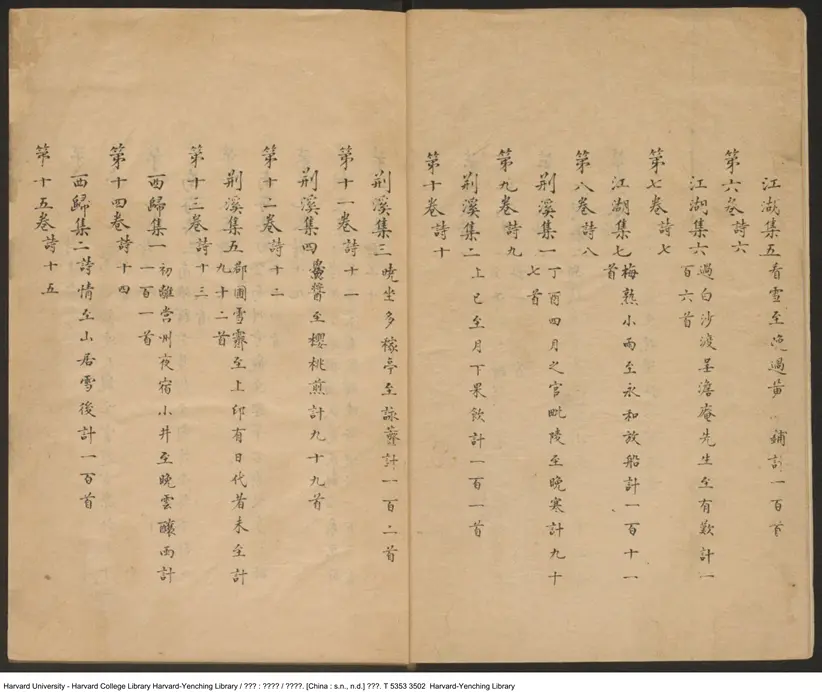 江湖集五 看雪至晚過黃 鋪計一百首
第六卷詩六
江湖集六 過白沙渡呈澹庵先生至有歎計一
百六首
第七卷詩七
江湖集七 梅熟小雨至永和放船計一百十一
首
第八卷詩八
荆溪集一 丁酉四月之官毗陵至晚寒計九十
七首
第九卷詩九
荆溪集二 上巳至月下果飲計一百一首
第十卷詩十
荆溪集三 曉坐多稼亭至詠薺計一百二首
第十一卷詩十一
荆溪集四 至櫻桃煎計九十九首
第十二卷詩十二
荆溪集五 郡圃雪霽至上印有日代者未至計
九十二首
第十三卷詩十三
西歸集一 初離常州夜宿小井至晚雲釀雨計
一百一首
第十四卷詩十四
西歸集二 詩情至山居雪後計一百首
第十五卷詩十五
Harvard University - Harvard College Library Harvard-Yenching Library / ??? : ???? / ????. [China : s.n., n.d.] ???. T 5353 3502  Harvard-Yenching Library